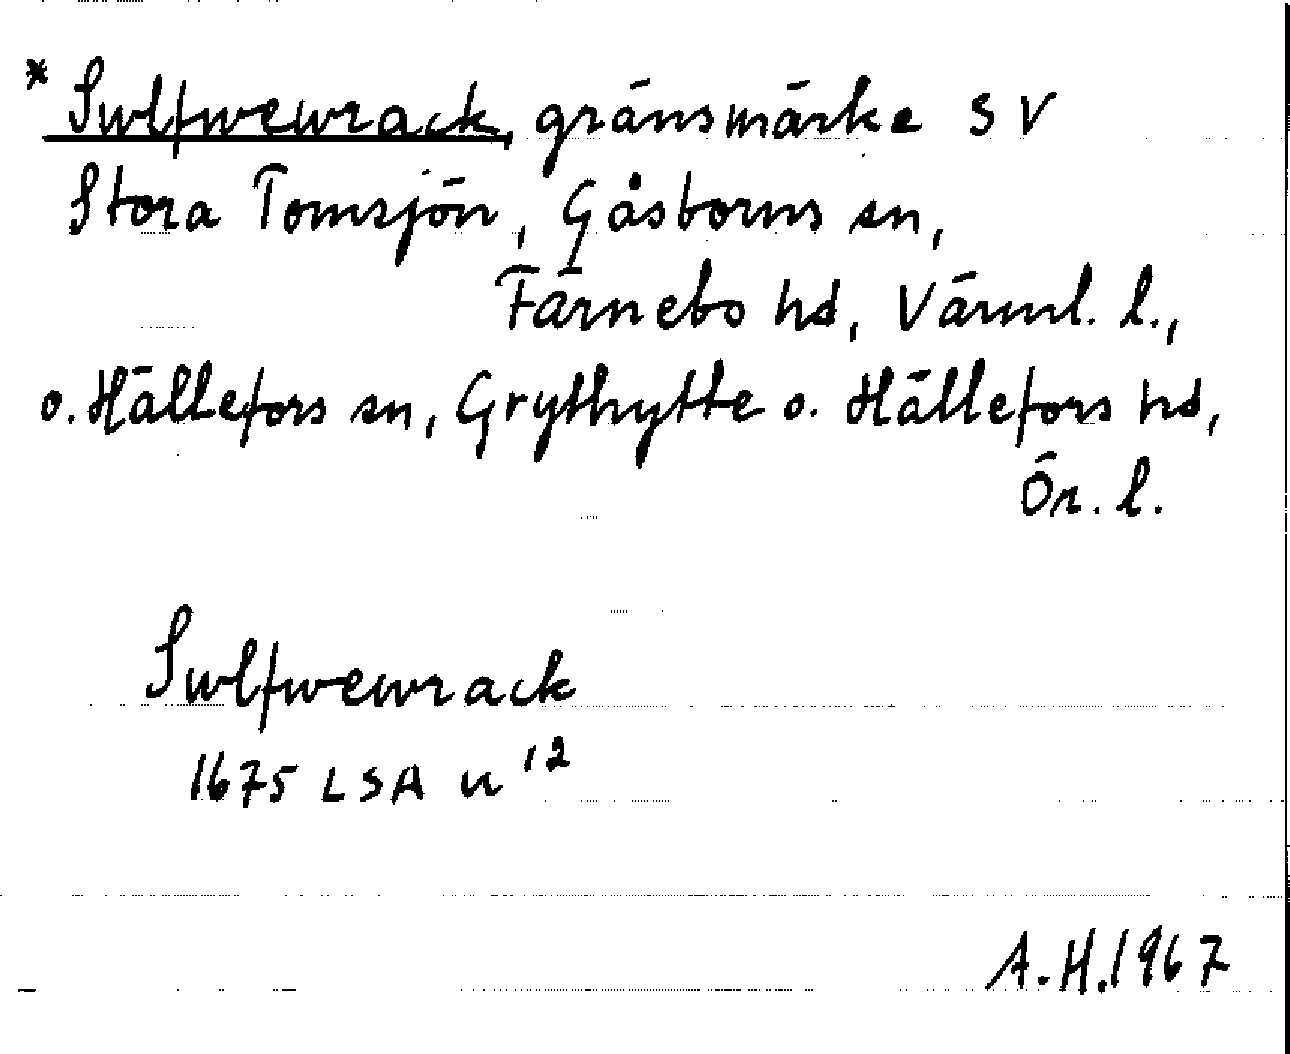 * Swlfwewrack, gränsmärke SV
Stora Tomsjön, Gåsborns sn,
Färnebo hd, Värml. l.,
o. Hällefors sn, Grythytte o. Hällefors hd,
Ör. l.
Swlfwewrack
1675 LSA u 12
A.H. 1967